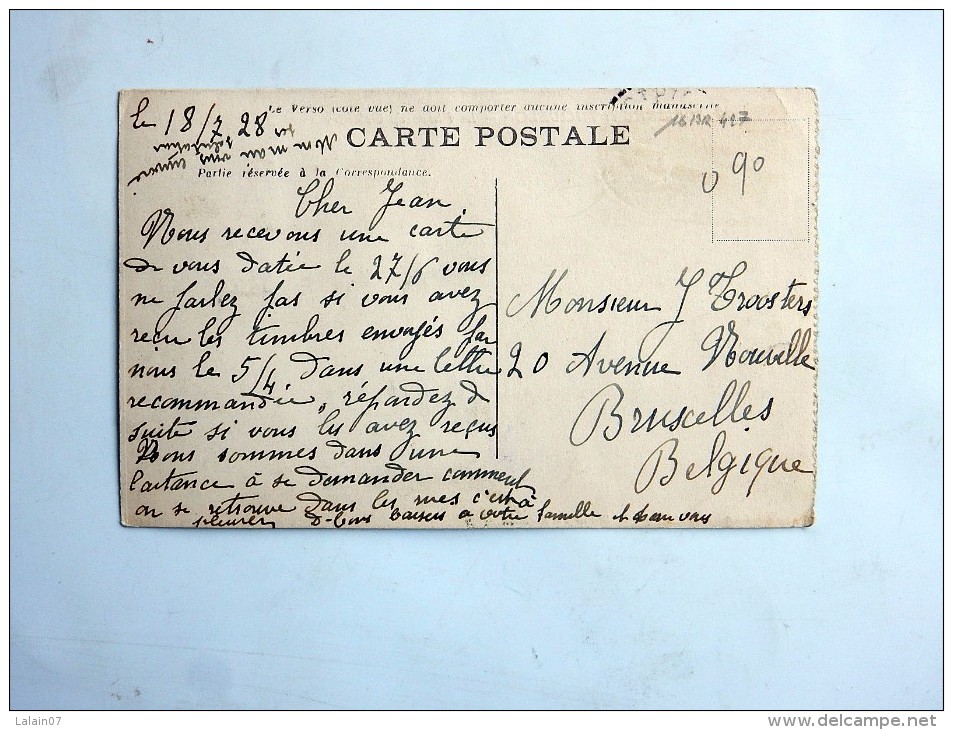 Le Verso (côté vue) ne doit comporter aucune inscription manuscrite
le 18/7 28
CARTE POSTALE
Partie réservée à la Correspondance.
Cher Jean
Nous recevons une carte
de vous datée le 27/6 vous
ne parlez pas si vous avez
recu les timbres envoyés par
nous le 5/4 dans une lettre
recommandée, répondez de
suite si vous les avez reçus
Nous sommes dans une
à se demander comment
on se retrouve dans les rues c'est à
pleurer baisers à votre famille
090
Monsieur J Troosters
20 Avenue Nouvelle
Bruxelles
Belgique
Lalain07
www.delcampe.net